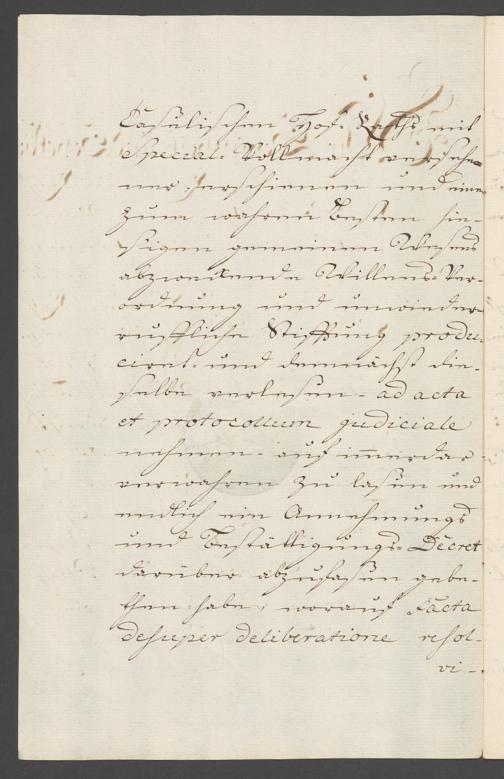 Casülischen Hof-Raths mit
Special-Vollmacht versehe-
ner, erschienen und eine
zum wahren Besten hie-
sigen gemeinen Wesens
abzweckende Willens-Ver-
ordnung und unwieder-
ruffliche Stifftung produ-
ciret, und demnächst die-
selbe verlesen, ad acta
et protocollum judiciale
nehmen, auf immerdar
verwahren zu lasen und
endlich ein Annehmungs
und Bestättigungs-Decret
darüber abzufasen gebe-
then habe, worauf Facta
desuper deliberatione resol-
vi-